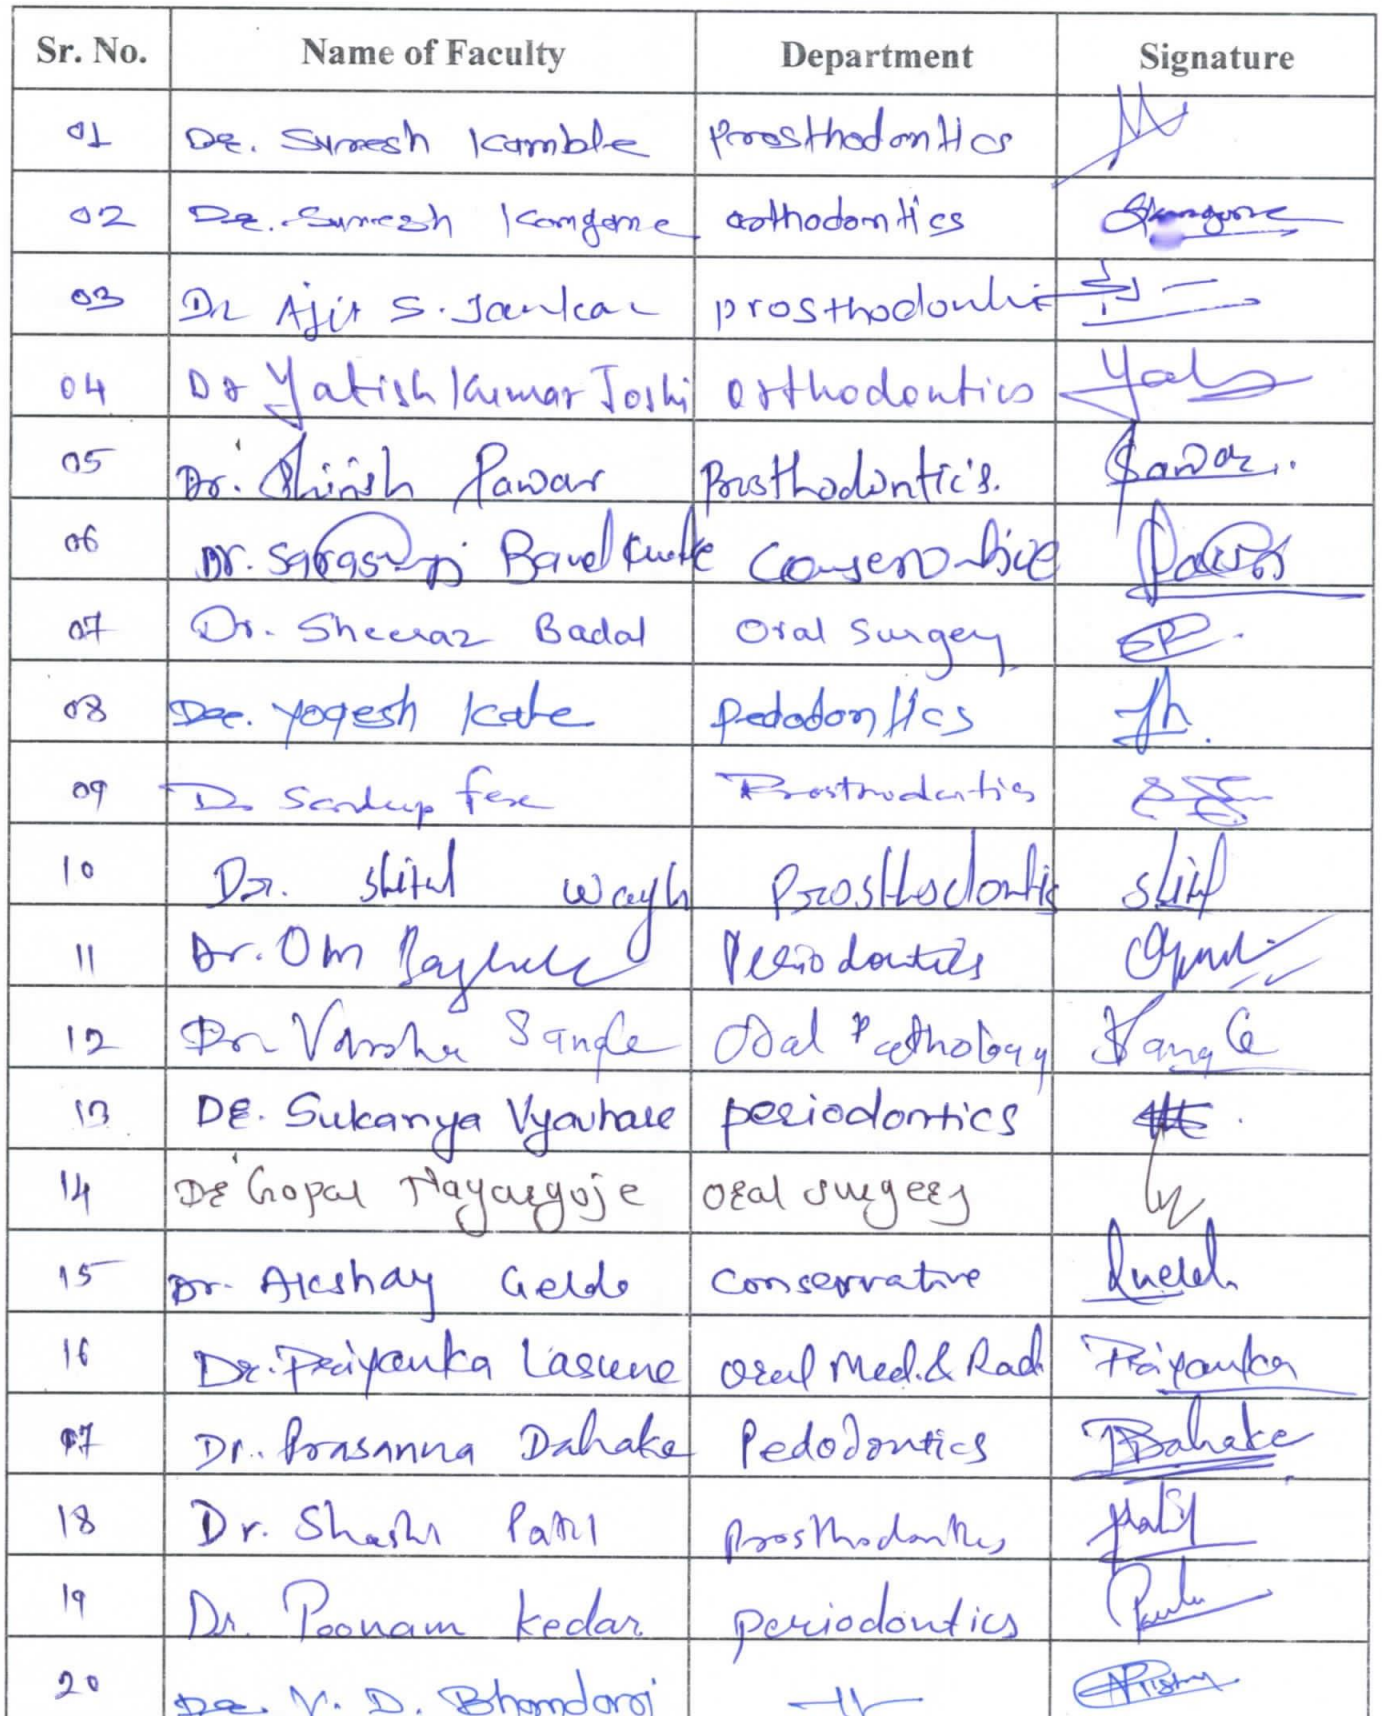 Sr. No. Name of Faculty Department Signature
01 Dr. Suresh Kamble Prosthodontics
02 Dr. Suresh Kangane Orthodontics
03 Dr Ajit S. Jankar prosthodontic
04 Dr Yatish Kumar Joshi Orthodontics
05 Dr. Shirish Pawar Prosthodontics. Pawar
06 Dr. Conservative
07 Dr. Sheeraz Badal Oral Surgery
08 Dr. Yogesh Kale Pedodontics
09 Dr Sandeep Prosthodontics
10 Dr. Shital Wagh Prosthodontics
11 Dr. Om Baghele Periodontics
12 Dr Varsha Sangle Oral Pathology Sangle
13 Dr. Sukanya Vyavhare periodontics
14 Dr Gopal Nagargoje Oral surgery
15 Dr. Akshay Gelda Conservative
16 Dr. Priyanka Lasune Oral Med. & Rad. Priyanka
17 Dr. Prasanna Dahake Pedodontics Dahake
18 Dr. Shashi Patil Prosthodontics Patil
19 Dr. Poonam Kedar periodontics
20 Dr. N. D. Bhandari —11—